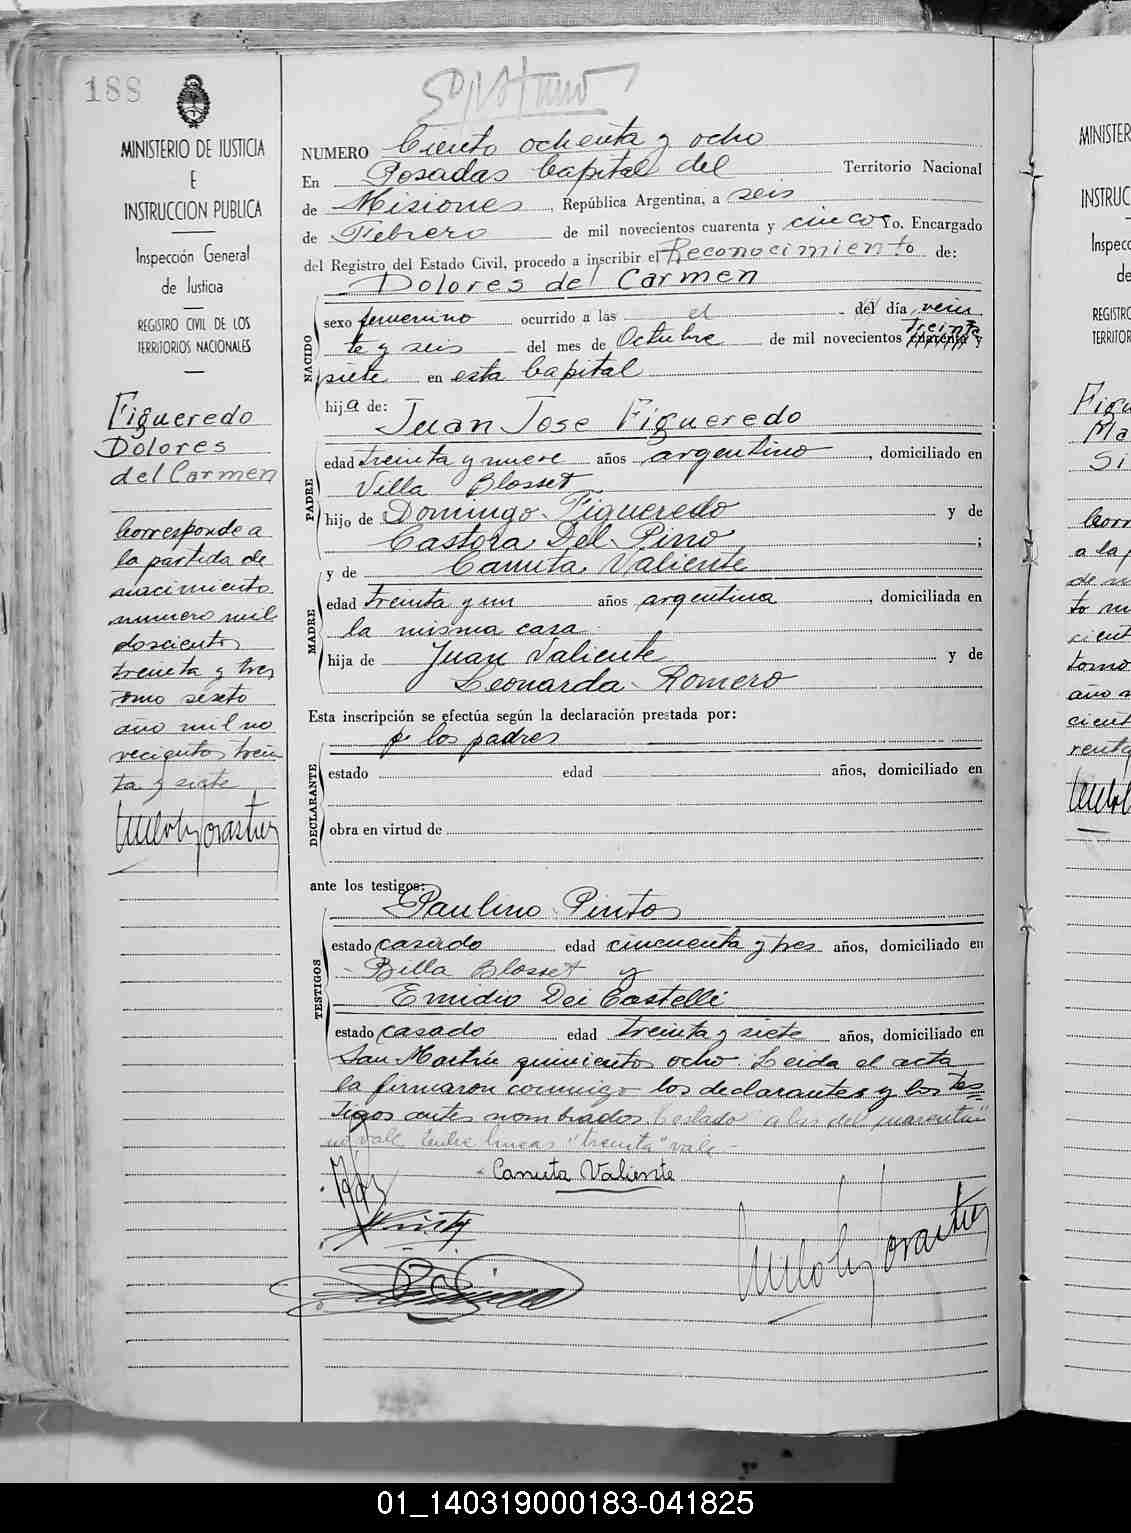 188
MINISTERIO DE JUSTICIA
E
INSTRUCCION PUBLICA
Inspección General
de Justicia
REGISTRO CIVIL DE LOS
TERRITORIOS NACIONALES
Figueredo
Dolores
del Carmen
Corresponde a
la partida de
nacimiento
numero mil
doscientos
treinta y tres
tomo sexto
año mil no
vecientos trein
ta y siete
NUMERO Ciento ochenta y ocho
En Posadas Capital del Territorio Nacional
de Misiones, República Argentina, a seis
de Febrero de mil novecientos cuarenta y cinco Yo. Encargado
del Registro del Estado Civil, procedo a inscribir el Reconocimiento de:
Dolores del Carmen
NACIDO
sexo femenino ocurrido a las el del día vein
te y seis del mes de Octubre de mil novecientos treinta cuarenta y
siete en esta Capital
hija de:
Juan Jose Figueredo
PADRE
edad treinta y nueve años argentino, domiciliado en
Villa Blosset
hijo de Domingo Figueredo y de
Castora Del Pino;
y de Canuta Valiente
MADRE
edad treinta y un años argentina, domiciliada en
la misma casa
hija de Juan Valiente y de
Leonarda Romero
Esta inscripción se efectúa según la declaración prestada por:
los padres
DECLARANTE
estado edad años, domiciliado en
obra en virtud de
ante los testigos:
Paulino Pintos
TESTIGOS
estado casado edad cincuenta y tres años, domiciliado en
Billa Blosset y
Emidio Dei Castelli
estado casado edad treinta y siete años, domiciliado en
San Martin quinientos ocho. Leida el acta
la firmaron conmigo los declarantes y los tes
tigos antes nombrados.
no vale entre lineas "treinta" vale-
Canuta Valiente
MINISTER
INSTRUC
Inspecc
de
REGISTRO
TERRITORI
Figu
Ma
Si
Corr
a la p
de n
to m
cient
tomo
año m
cient
renta
01_140319000183-041825